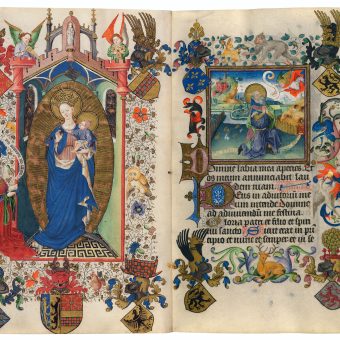 Domine labia mea aperies. Et
os meum annunciabit lau
dem tuam.
Deus in adiutoriu me
um intende Domine
ad adiuuandum me festina.
Gloria patri et filio et spiri
tui sancto Sicut erat in prin
cipio et nunc et semper et in se